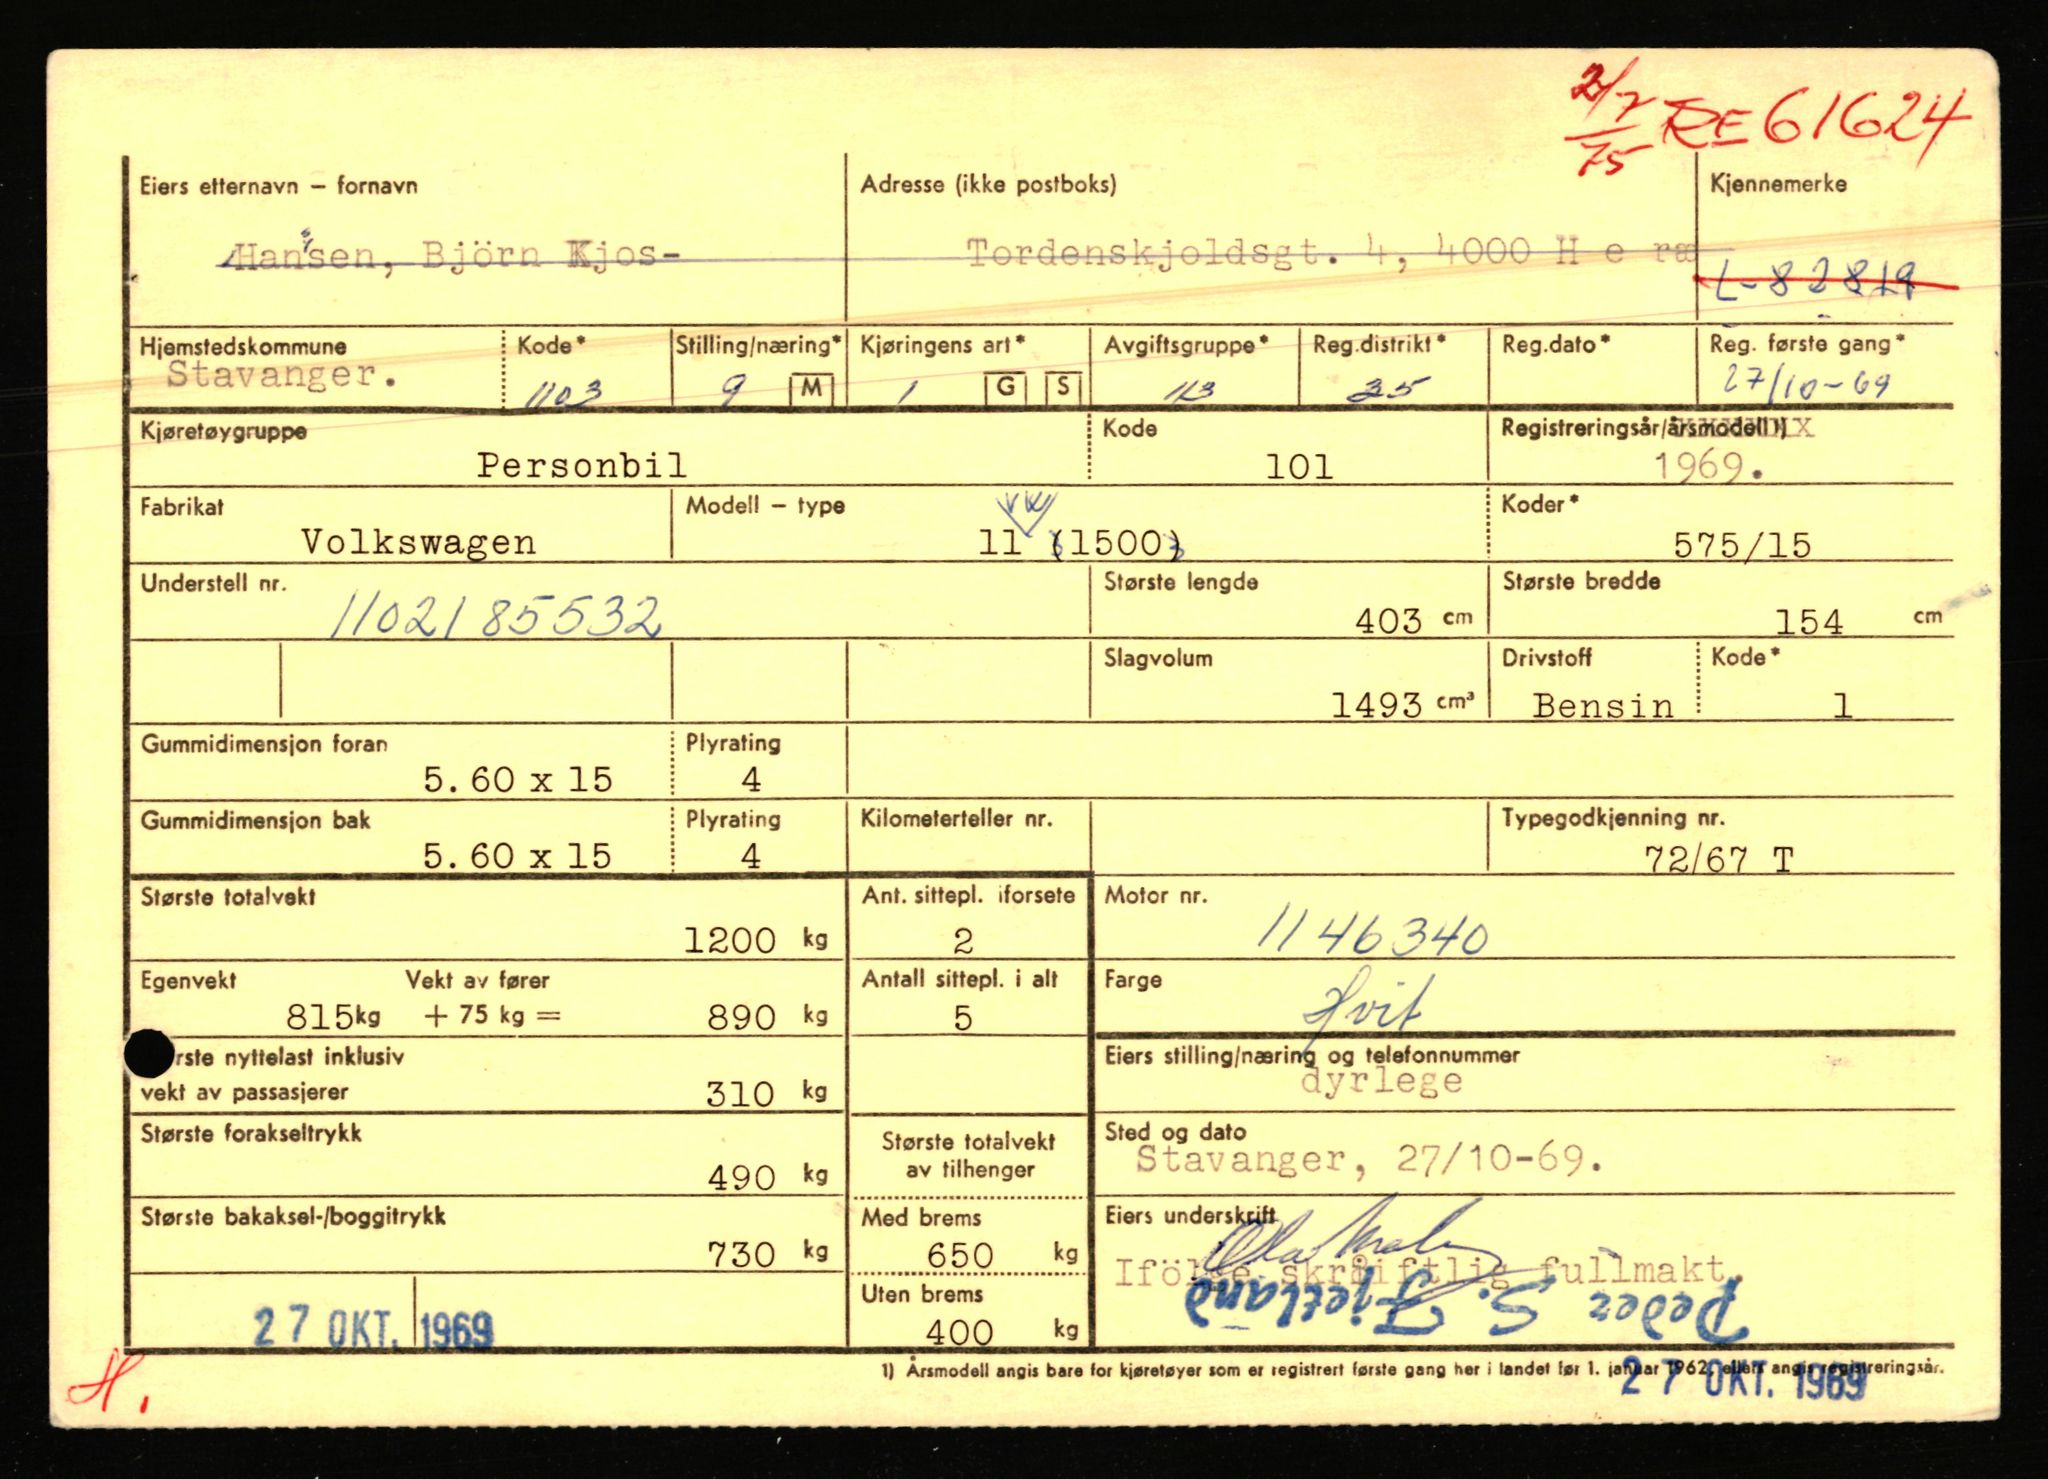 2/7 75 RE 61624
Eiers etternavn – fornavn
Adresse (ikke postboks)
Kjennemerke
Hansen, Björn Kjos-
Tordenskjoldsgt. 4, 4000 H e ræ
L-82819
Hjemstedskommune
Kode*
Stilling/næring*
Kjøringens art*
Avgiftsgruppe*
Reg.distrikt*
Reg.dato*
Reg. første gang*
Stavanger.
1103
9 M
1 G S
113
35
27/10-69
Kjøretøygruppe
Kode
Registreringsår/årsmodell 1)
Personbil
101
1969.
Fabrikat
Modell – type
VW
Koder*
Volkswagen
11 (1500)
575/15
Understell nr.
Største lengde
Største bredde
1102185532
403 cm
154 cm
Slagvolum
Drivstoff
Kode*
1493 cm³
Bensin
1
Gummidimensjon foran
Plyrating
5.60 x 15
4
Gummidimensjon bak
Plyrating
Kilometerteller nr.
Typegodkjenning nr.
5.60 x 15
4
72/67 T
Største totalvekt
Ant. sittepl. iforsete
Motor nr.
1200 kg
2
1146340
Egenvekt
Vekt av fører
Antall sittepl. i alt
Farge
815kg + 75 kg = 890 kg
5
Hvit
rste nyttelast inklusiv
vekt av passasjerer
310 kg
Eiers stilling/næring og telefonnummer
dyrlege
Største forakseltrykk
490 kg
Største totalvekt
av tilhenger
Sted og dato
Stavanger, 27/10-69.
Største bakaksel-/boggitrykk
730 kg
Med brems
650 kg
Eiers underskrift
Ifölge skriftlig fullmakt.
Peder S. Fjetland
Uten brems
400 kg
27 OKT. 1969
H.
1) Årsmodell angis bare for kjøretøyer som er registrert første gang her i landet før 1. januar 1962, ellers angis registreringsår.
27 OKT. 1969